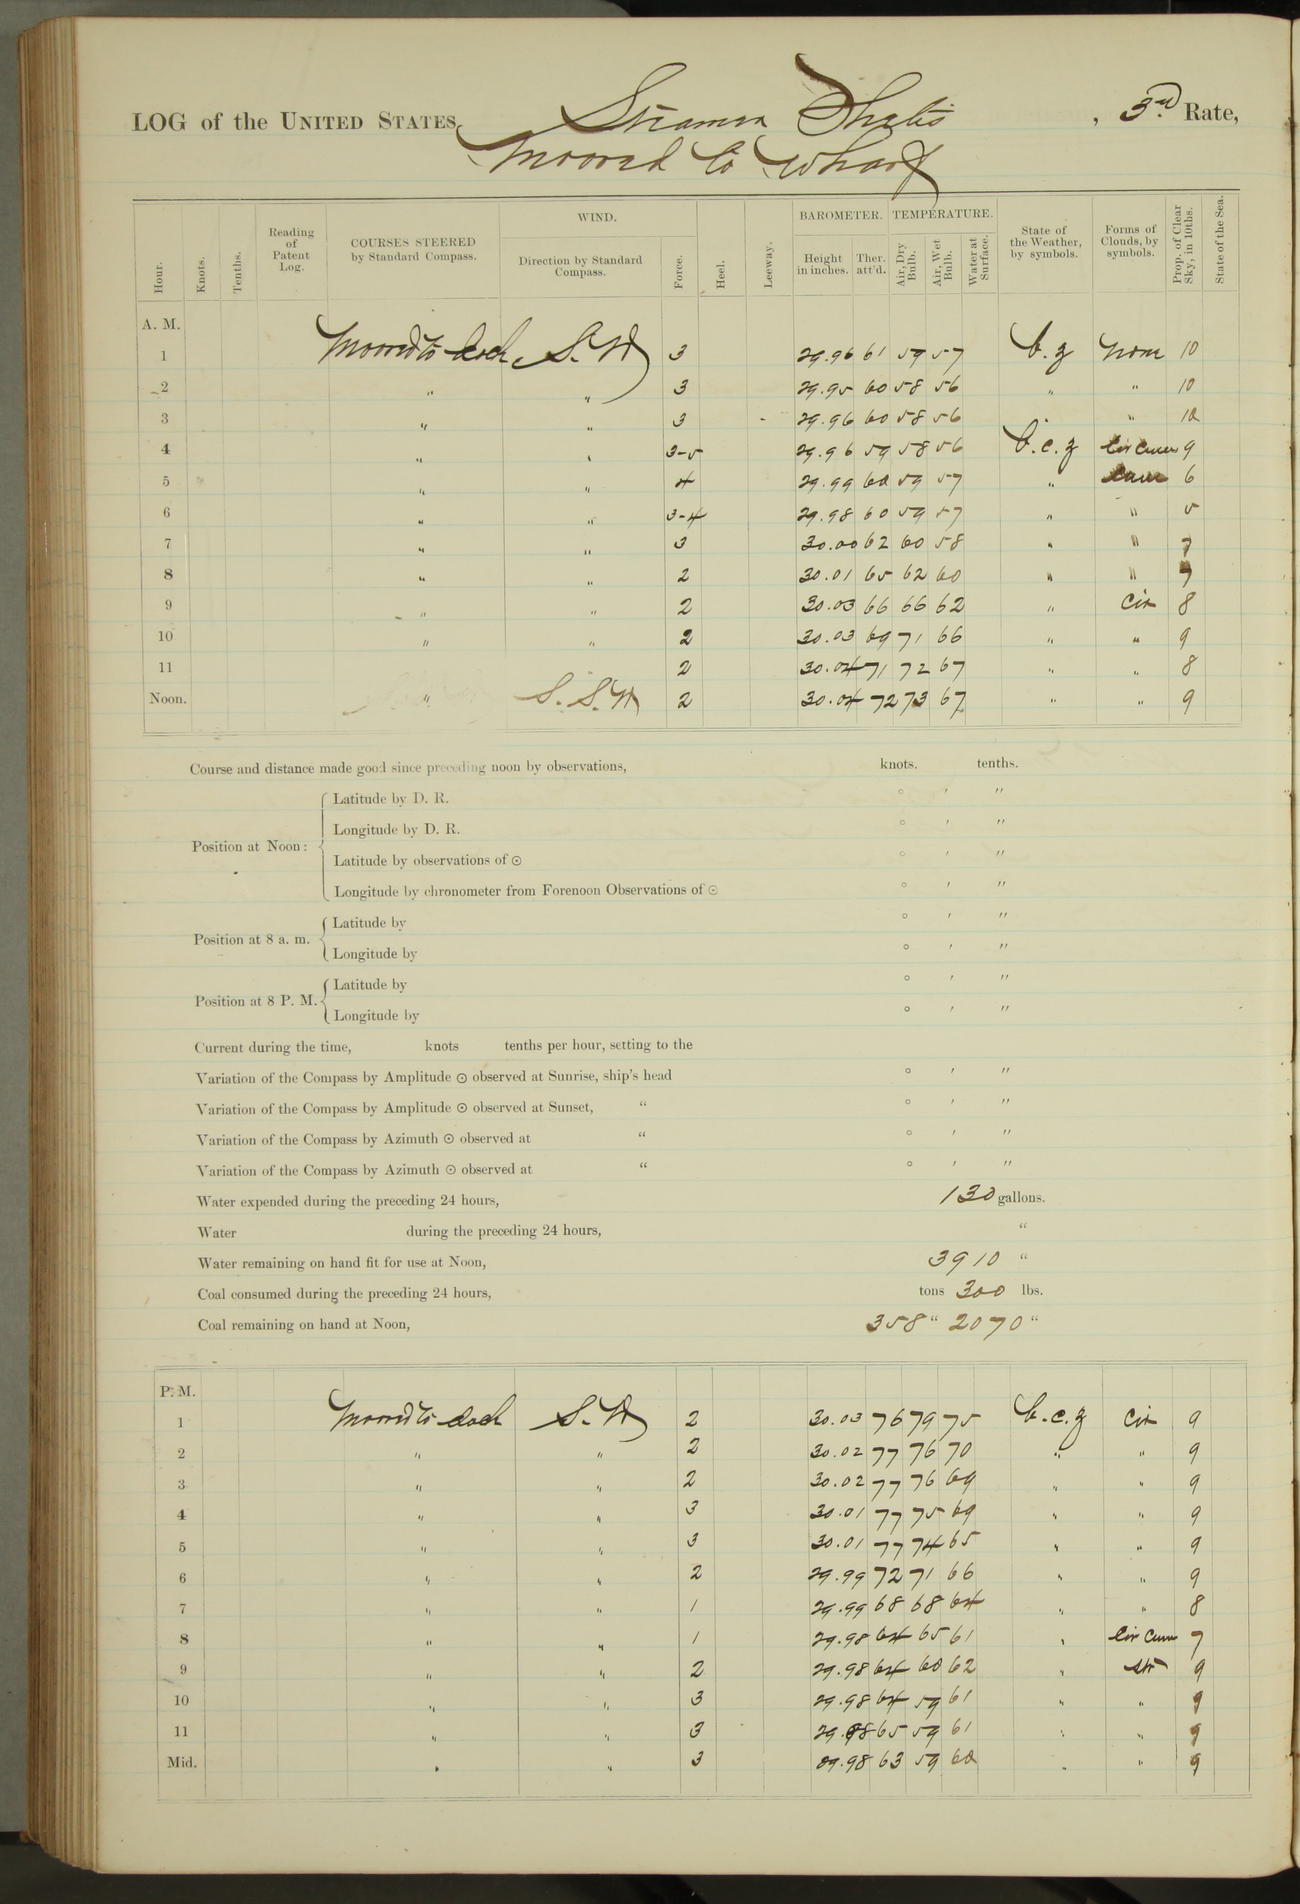 LOG of the UNITED STATES Steamer Thetis, 3rd Rate,
Moored to Wharf
Hour. Knots. Tenths. Reading of Patent Log. COURSES STEERED by Standard Compass. WIND. Direction by Standard Compass. Force. Heel. Leeway. BAROMETER. Height in inches. Ther. att'd. TEMPERATURE. Air, Dry Bulb. Air, Wet Bulb. Water at Surface. State of the Weather, by symbols. Forms of Clouds, by symbols. Prop. of Clear Sky, in 10ths. State of the Sea.
A. M.
1 Moored to dock S. W 3 29.96 61 59 57 b.z none 10
2 " " 3 29.95 60 58 56 " " 10
3 " " 3 29.96 60 58 56 " " 10
4 " " 3-5 29.96 59 58 56 b.c.z Cir Cum 9
5 " " 4 29.99 60 59 57 " Cum 6
6 " " 3-4 29.98 60 59 57 " " 5
7 " " 3 30.00 62 60 58 " " 7
8 " " 2 30.01 65 62 60 " " 7
9 " " 2 30.03 66 66 62 " Cir 8
10 " " 2 30.03 69 71 66 " " 9
11 2 30.04 71 72 67 " " 8
Noon. " S. S. W 2 30.04 72 73 67 " " 9
Course and distance made good since preceding noon by observations, knots. tenths.
Position at Noon:
Latitude by D. R. ° ′ ″
Longitude by D. R. ° ′ ″
Latitude by observations of ⊙ ° ′ ″
Longitude by chronometer from Forenoon Observations of ⊙ ° ′ ″
Position at 8 a. m.
Latitude by ° ′ ″
Longitude by ° ′ ″
Position at 8 P. M.
Latitude by ° ′ ″
Longitude by ° ′ ″
Current during the time, knots tenths per hour, setting to the
Variation of the Compass by Amplitude ⊙ observed at Sunrise, ship's head ° ′ ″
Variation of the Compass by Amplitude ⊙ observed at Sunset, " ° ′ ″
Variation of the Compass by Azimuth ⊙ observed at " ° ′ ″
Variation of the Compass by Azimuth ⊙ observed at " ° ′ ″
Water expended during the preceding 24 hours, 130 gallons.
Water during the preceding 24 hours, "
Water remaining on hand fit for use at Noon, 3910 "
Coal consumed during the preceding 24 hours, tons 300 lbs.
Coal remaining on hand at Noon, 358 " 2070 "
P. M.
1 Moored to dock S. W 2 30.03 76 79 75 b.c.z Cir 9
2 " " 2 30.02 77 76 70 " " 9
3 " " 2 30.02 77 76 69 " " 9
4 " " 3 30.01 77 75 69 " " 9
5 " " 3 30.01 77 74 65 " " 9
6 " " 2 29.99 72 71 66 " " 9
7 " " 1 29.99 68 68 64 " " 8
8 " " 1 29.98 64 65 61 " Cir Cum 7
9 " " 2 29.98 64 60 62 " Str 9
10 " " 3 29.98 64 59 61 " " 9
11 " " 3 29.98 65 59 61 " " 9
Mid. " " 3 29.98 63 59 60 " " 9